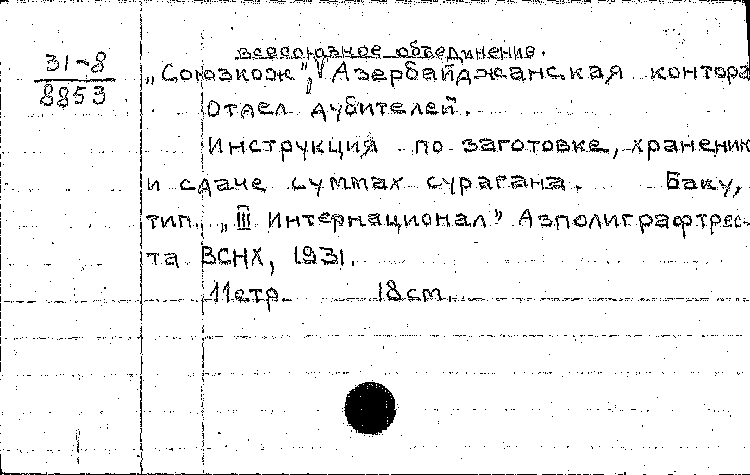 всесоюзное объединение.
31-8
8853
„Союзкож”, Азербайджанская контора
Отдел дубителей.
Инструкция по заготовке, хранению
и сдаче суммах сурагана. Баку,
тип. „III Интернационал” Азполиграфтрес-
та ВСНХ, 1931.
11 стр. 18 см.